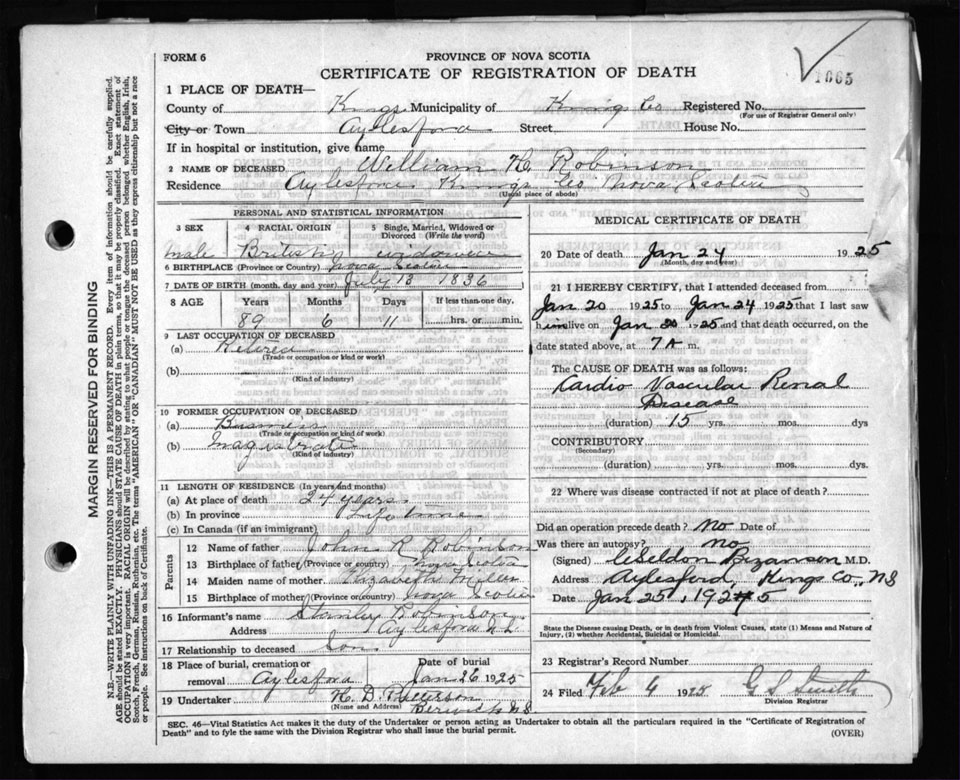 FORM 6
PROVINCE OF NOVA SCOTIA
CERTIFICATE OF REGISTRATION OF DEATH
1665
1 PLACE OF DEATH—
County of Kings Municipality of Kings Co Registered No.
(For use of Registrar General only)
City or Town Aylesford Street House No.
If in hospital or institution, give name
2 NAME OF DECEASED William H. Robinson
Residence Aylesford Kings Co Nova Scotia
(Usual place of abode)
PERSONAL AND STATISTICAL INFORMATION
3 SEX 4 RACIAL ORIGIN 5 Single, Married, Widowed or Divorced (Write the word)
male British widower
6 BIRTHPLACE (Province or Country) Nova Scotia
7 DATE OF BIRTH (month, day and year) July 13 1836
8 AGE Years Months Days If less than one day,
89 6 11 hrs. or min.
9 LAST OCCUPATION OF DECEASED
(a) Retired
(Trade or occupation or kind or work)
(b)
(Kind of industry)
10 FORMER OCCUPATION OF DECEASED
(a) Business
(Trade or occupation or kind of work)
(b) Magistrate
(Kind of industry)
11 LENGTH OF RESIDENCE (In years and months)
(a) At place of death 24 years
(b) In province Life time
(c) In Canada (if an immigrant)
Parents
12 Name of father John R Robinson
13 Birthplace of father (Province or country) Nova Scotia
14 Maiden name of mother Elizabeth
15 Birthplace of mother (Province or country) Nova Scotia
16 Informant's name Stanley Robinson
Address Aylesford N.S.
17 Relationship to deceased Son
18 Place of burial, cremation or removal Aylesford
Date of burial Jan 26 1925
19 Undertaker H. D.
(Name and Address) Berwick N.S.
MEDICAL CERTIFICATE OF DEATH
20 Date of death Jan 24 1925
(Month, day and year)
21 I HEREBY CERTIFY, that I attended deceased from
Jan 20 1925 to Jan 24 1925 that I last saw
him alive on Jan 20 1925 and that death occurred, on the
date stated above, at 7 A m.
The CAUSE OF DEATH was as follows:
Cardio Vascular Renal
Disease
(duration) 15 yrs. mos. dys
CONTRIBUTORY
(Secondary)
(duration) yrs. mos. dys.
22 Where was disease contracted if not at place of death?
Did an operation precede death? no Date of
Was there an autopsy? no
(Signed) Seldon Bezanson M.D.
Address Aylesford, Kings Co., NS
Date Jan 25, 1925
State the Disease causing Death, or in death from Violent Causes, state (1) Means and Nature of
Injury, (2) whether Accidental, Suicidal or Homicidal.
23 Registrar's Record Number
24 Filed Feb 4 1925 G S Smith
Division Registrar
SEC. 46—Vital Statistics Act makes it the duty of the Undertaker or person acting as Undertaker to obtain all the particulars required in the "Certificate of Registration of
Death" and to fyle the same with the Division Registrar who shall issue the burial permit.
(OVER)
MARGIN RESERVED FOR BINDING
N.B.—WRITE PLAINLY WITH UNFADING INK—THIS IS A PERMANENT RECORD. Every item of information should be carefully supplied.
AGE should be stated EXACTLY. PHYSICIANS should STATE CAUSE OF DEATH in plain terms, so that it may be properly classified. Exact statement of
OCCUPATION is very important. RACIAL ORIGIN will be described by stating to what people or tongue the deceased person belonged whether English, Irish,
Scotch, French, German, Russian, Ruthenian, etc. The terms "AMERICAN" OR "CANADIAN" MUST NOT BE USED as they express citizenship but not a race
or people. See instructions on back of Certificate.